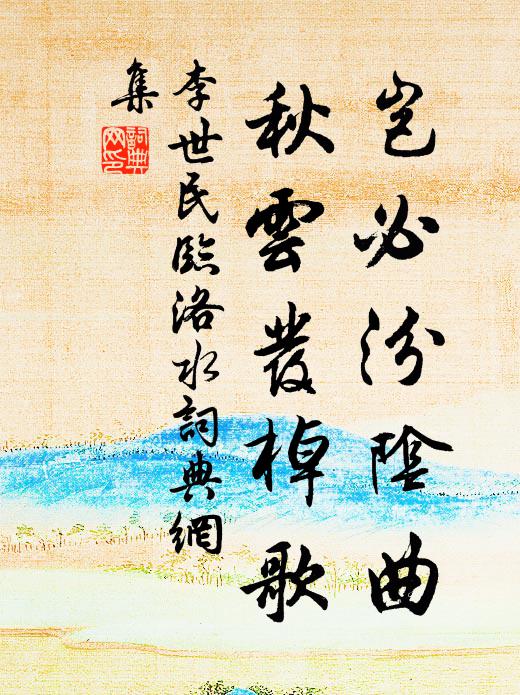 豈必汾陰曲
秋雲發棹歌
李世民臨洛水詞典網
集
詞典
网印